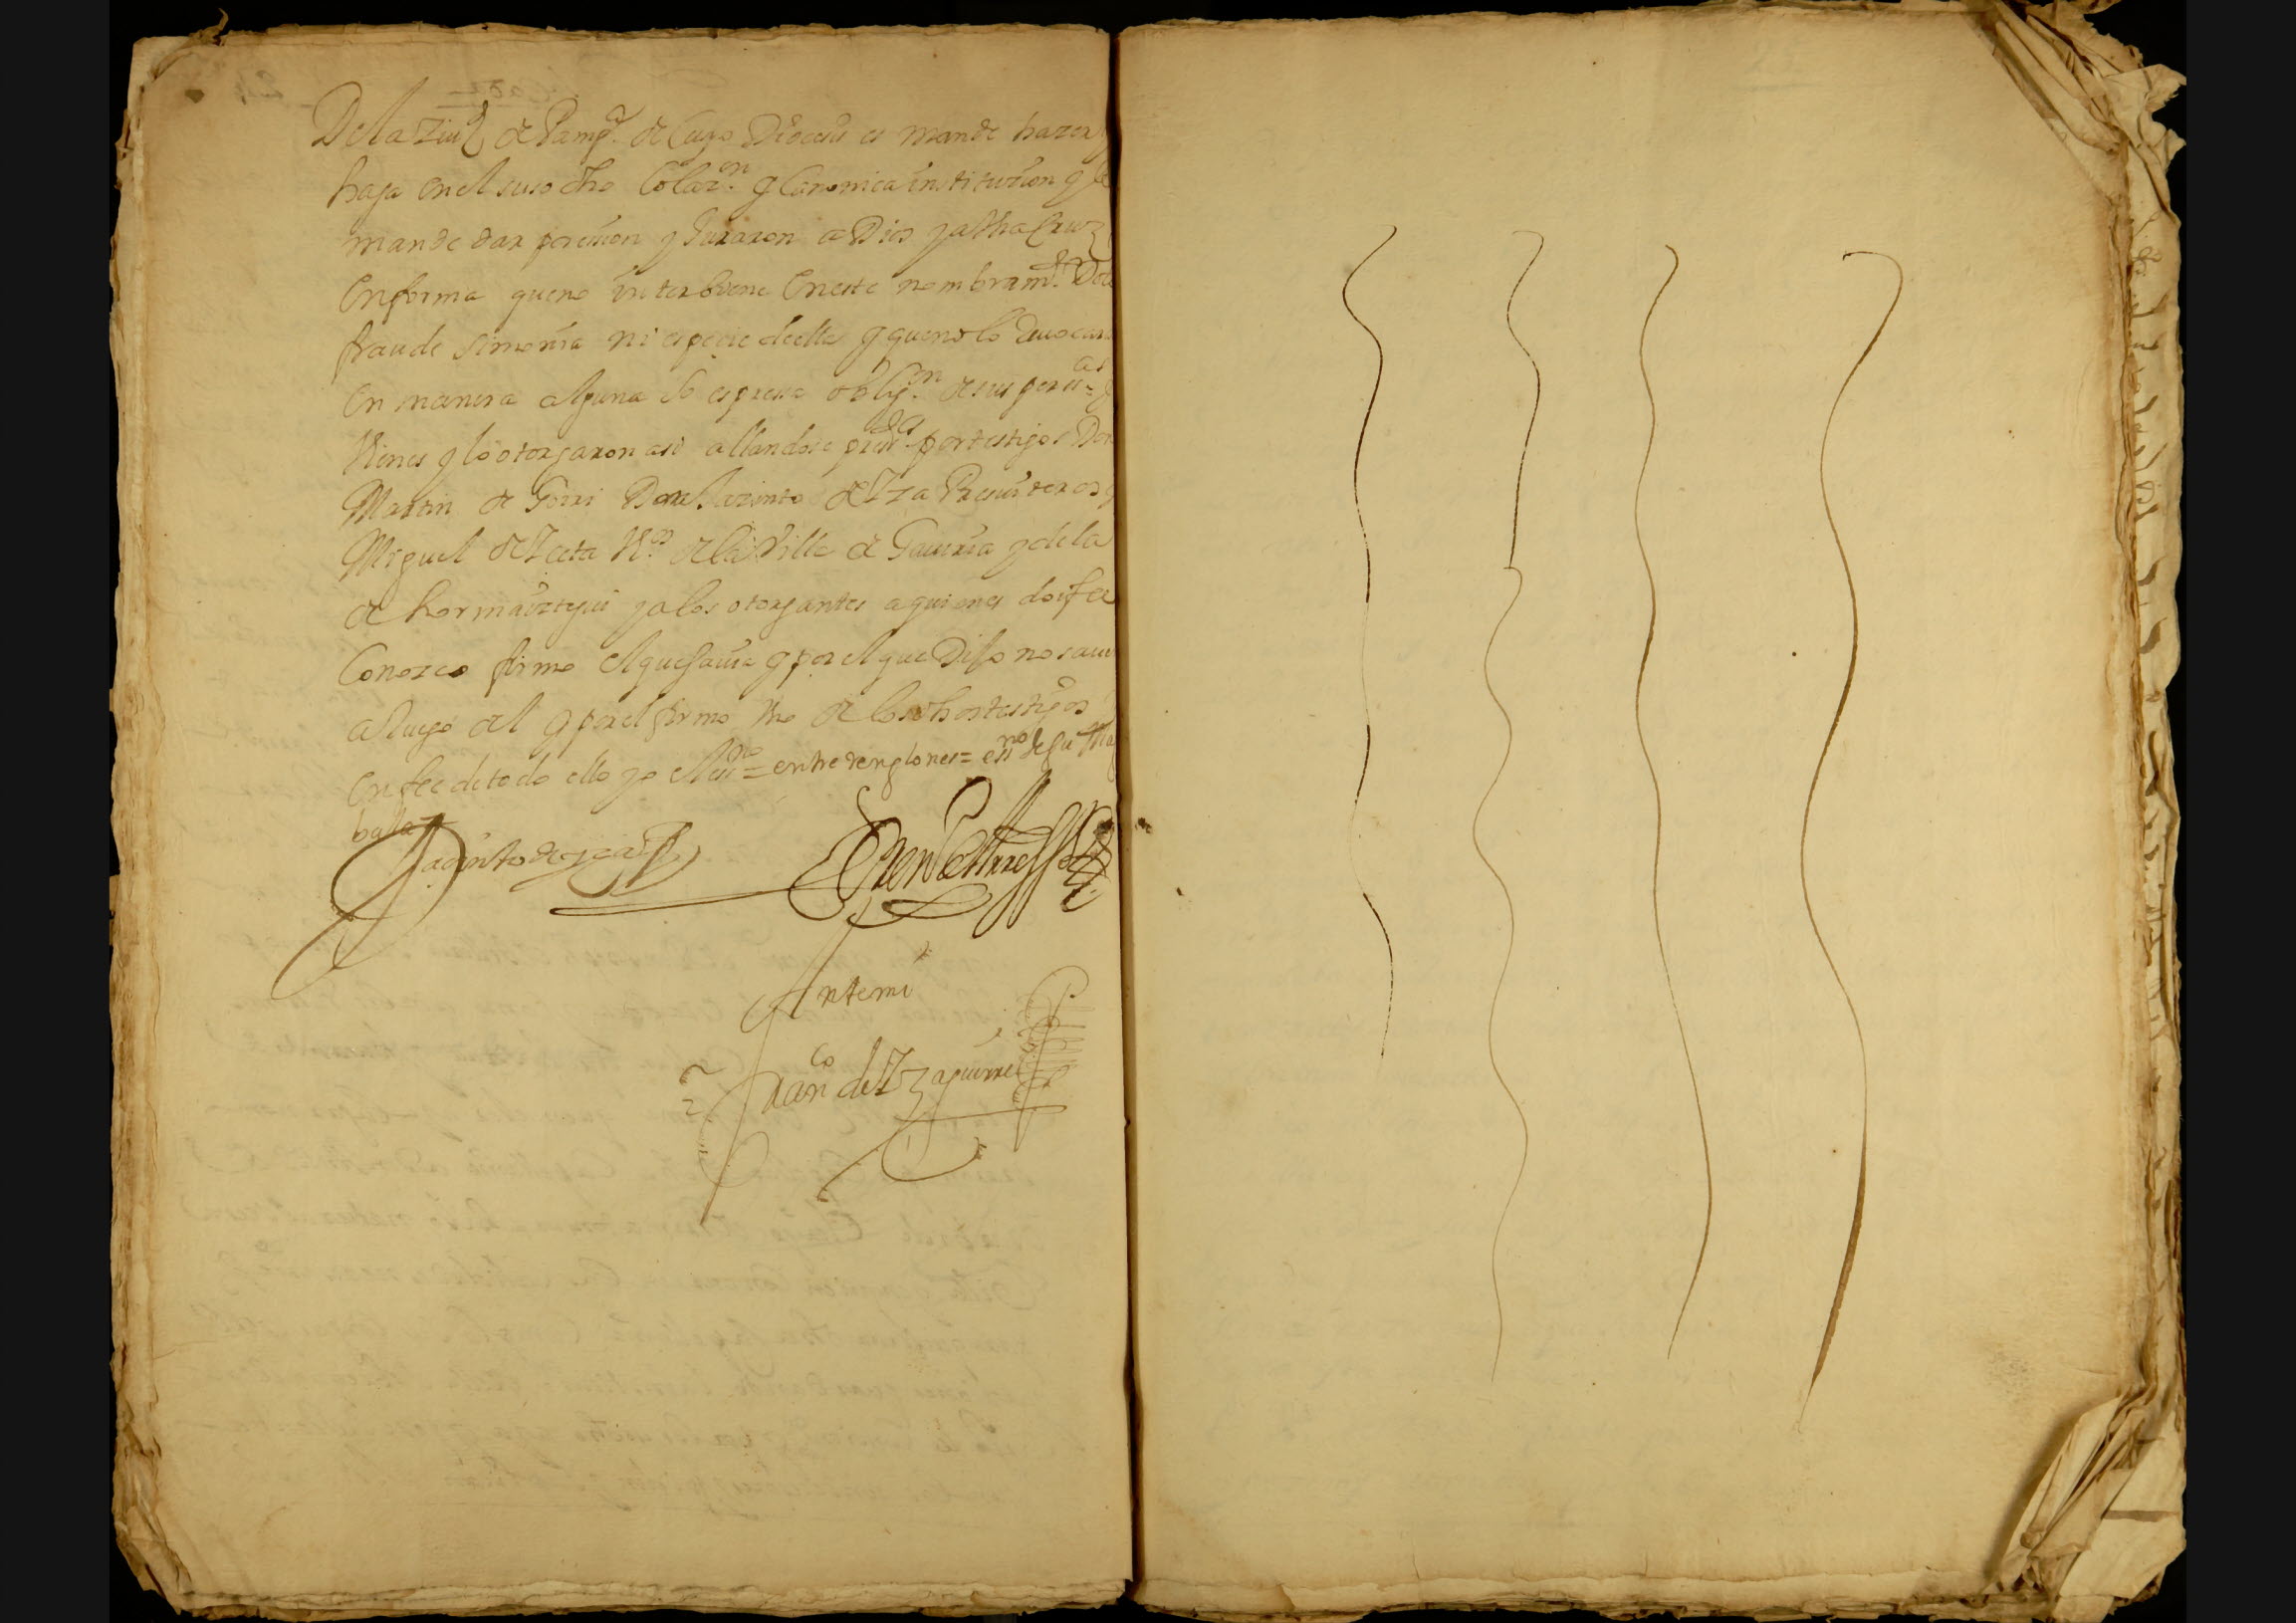 De la Ziud de Pampa de Cuyo Diocesis es mande hazer
haga en el suso dho Colazon y Canonica instituzion y le
mande dar posesion y Juraron a Dios y a esta Cruz
en forma que no interbiene en este nombramto
fraude simonia ni especie de ella y que no lo
en manera alguna so espresa obligon de sus persas y
Vienes y lo otorgaron asi allandose pressa por testigos Don
Martin de Gorri Don Jazinto de Iza Presuiteros y
Miguel de Zaeta Vos de la Villa de Gauiria y de la
de hormaiztegui y a los otorgantes a quienes doi fee
Conozco firmo el que sauia y por el que Dijo no sauer
a Ruego del y por el firmo Vno de los dhos testigos
en fee de todo ello yo el essno = entre renglones = essno de su Mag
balla
Jacinto de yza
Ante mi
Franco de Yzaguirre